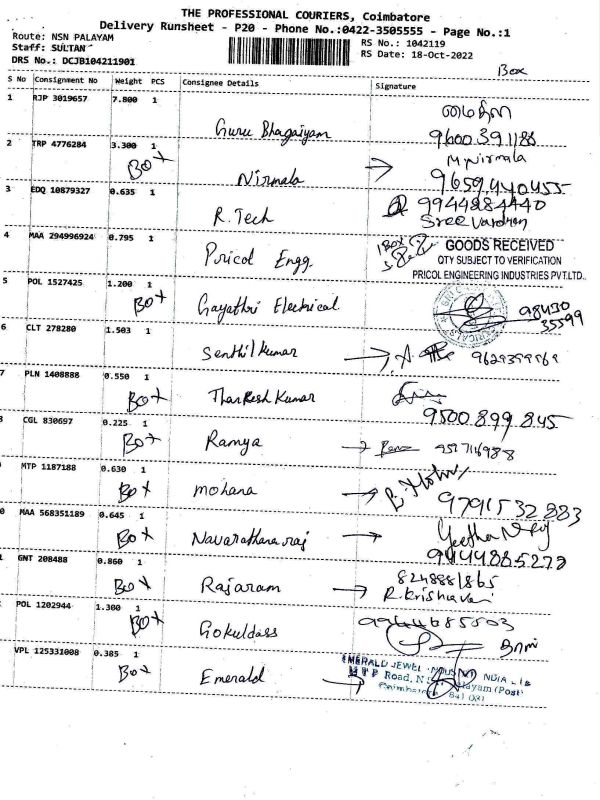 THE PROFESSIONAL COURIERS, Coimbatore
Delivery Runsheet - P20 - Phone No.:0422-3505555 - Page No.:1
Route: NSN PALAYAM
Staff: SULTAN
DRS No.: DCJB104211901
RS No.: 1042119
RS Date: 18-Oct-2022
Box
S No Consignment No Weight PCS Consignee Details Signature
1 RJP 3019657 7.800 1 Guru Bhagaiyam
9600391188
2 TRP 4776284 3.300 1 Box Nirmala → M Nirmala
9659440455
3 EDQ 10879327 0.635 1 R. Tech 9944884440
Sree Vardhan
4 MAA 294996924 0.795 1 Pricol Engg. 1 Box
GOODS RECEIVED
QTY SUBJECT TO VERIFICATION
PRICOL ENGINEERING INDUSTRIES PVT.LTD.
5 POL 1527425 1.200 1 Box Gayathri Electrical 98430
35599
6 CLT 278280 1.503 1 Senthil kumar →
7 PLN 1408888 0.550 1 Box Tharkesh Kumar
9500899845
CGL 830697 0.225 1 Box Ramya →
MTP 1187188 0.630 1 Box mohana → B. Mohan
9791532883
0 MAA 568351189 0.645 1 Box Navarathana raj →
9444885272
GNT 208488 0.860 1 Box Rajaram → 8248881865
POL 1202944 1.300 1 Box Gokuldass 9944685503
VPL 125331008 0.385 1 Box Emerald →
EMERALD JEWEL INDIA
M T P Road,
Coimbatore 641 031